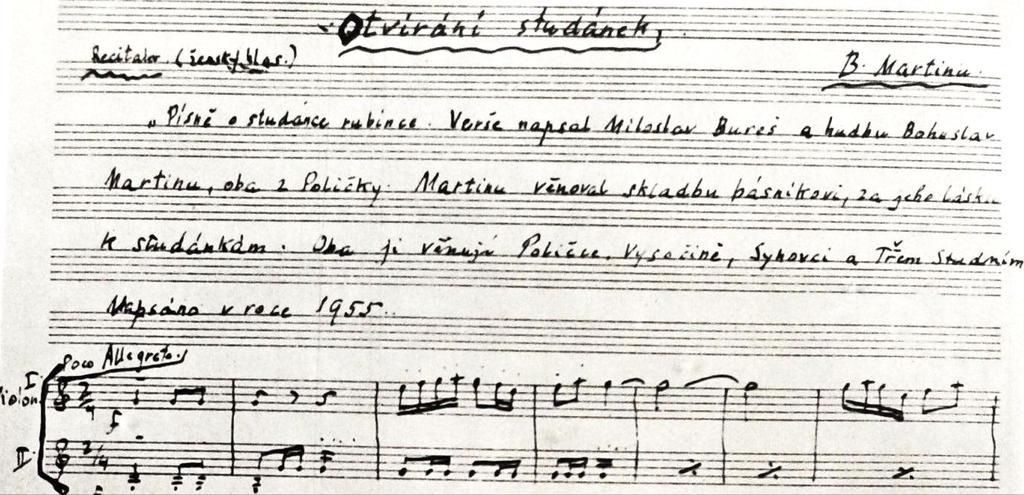 Otvírání studánek,
Recitator. (ženský hlas.)
B. Martinu.
„Písně o studánce rubínce. Verše napsal Miloslav Bureš a hudbu Bohuslav
Martinu, oba z Poličky. Martinu věnoval skladbu básníkovi, za jeho lásku
k studánkám. Oba ji věnují Poličce, Vysočině, Sykovci a Třem Studním
Napsáno v roce 1955.
Poco Allegreto.
I.
Violon
2/4
f
II.
2/4